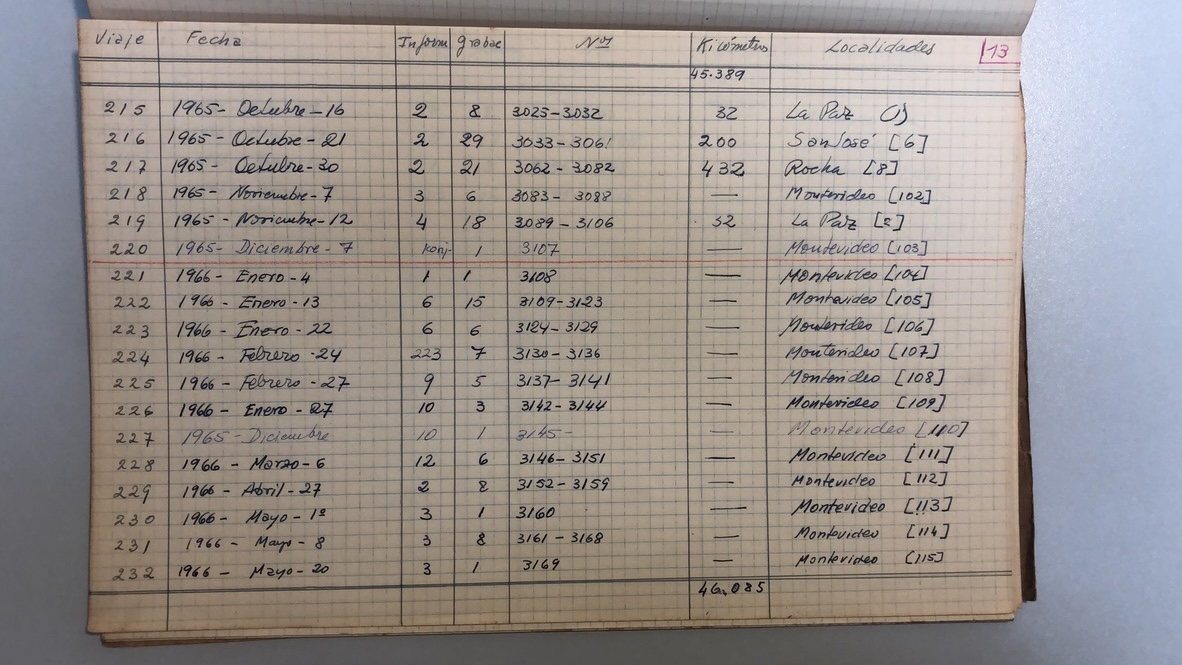 Viaje Fecha Inform grabac Nos Kilómetros Localidades 13
45.389
215 1965 - Octubre - 16 2 8 3025 - 3032 32 La Paz (1)
216 1965 - Octubre - 21 2 29 3033 - 3061 200 San José [6]
217 1965 - Octubre - 30 2 21 3062 - 3082 432 Rocha [8]
218 1965 - Noviembre - 7 3 6 3083 - 3088 — Montevideo [102]
219 1965 - Noviembre - 12 4 18 3089 - 3106 32 La Paz [2]
220 1965 - Diciembre - 7 1 3107 — Montevideo [103]
221 1966 - Enero - 4 1 1 3108 — Montevideo [104]
222 1966 - Enero - 13 6 15 3109 - 3123 — Montevideo [105]
223 1966 - Enero - 22 6 6 3124 - 3129 — Montevideo [106]
224 1966 - Febrero - 24 223 7 3130 - 3136 — Montevideo [107]
225 1966 - Febrero - 27 9 5 3137 - 3141 — Montevideo [108]
226 1966 - Enero - 27 10 3 3142 - 3144 — Montevideo [109]
227 1965 - Diciembre 10 1 3145 - — Montevideo [110]
228 1966 - Marzo - 6 12 6 3146 - 3151 — Montevideo [111]
229 1966 - Abril - 27 2 8 3152 - 3159 — Montevideo [112]
230 1966 - Mayo - 1º 3 1 3160 — Montevideo [113]
231 1966 - Mayo - 8 3 8 3161 - 3168 — Montevideo [114]
232 1966 - Mayo - 20 3 1 3169 — Montevideo [115]
46.085